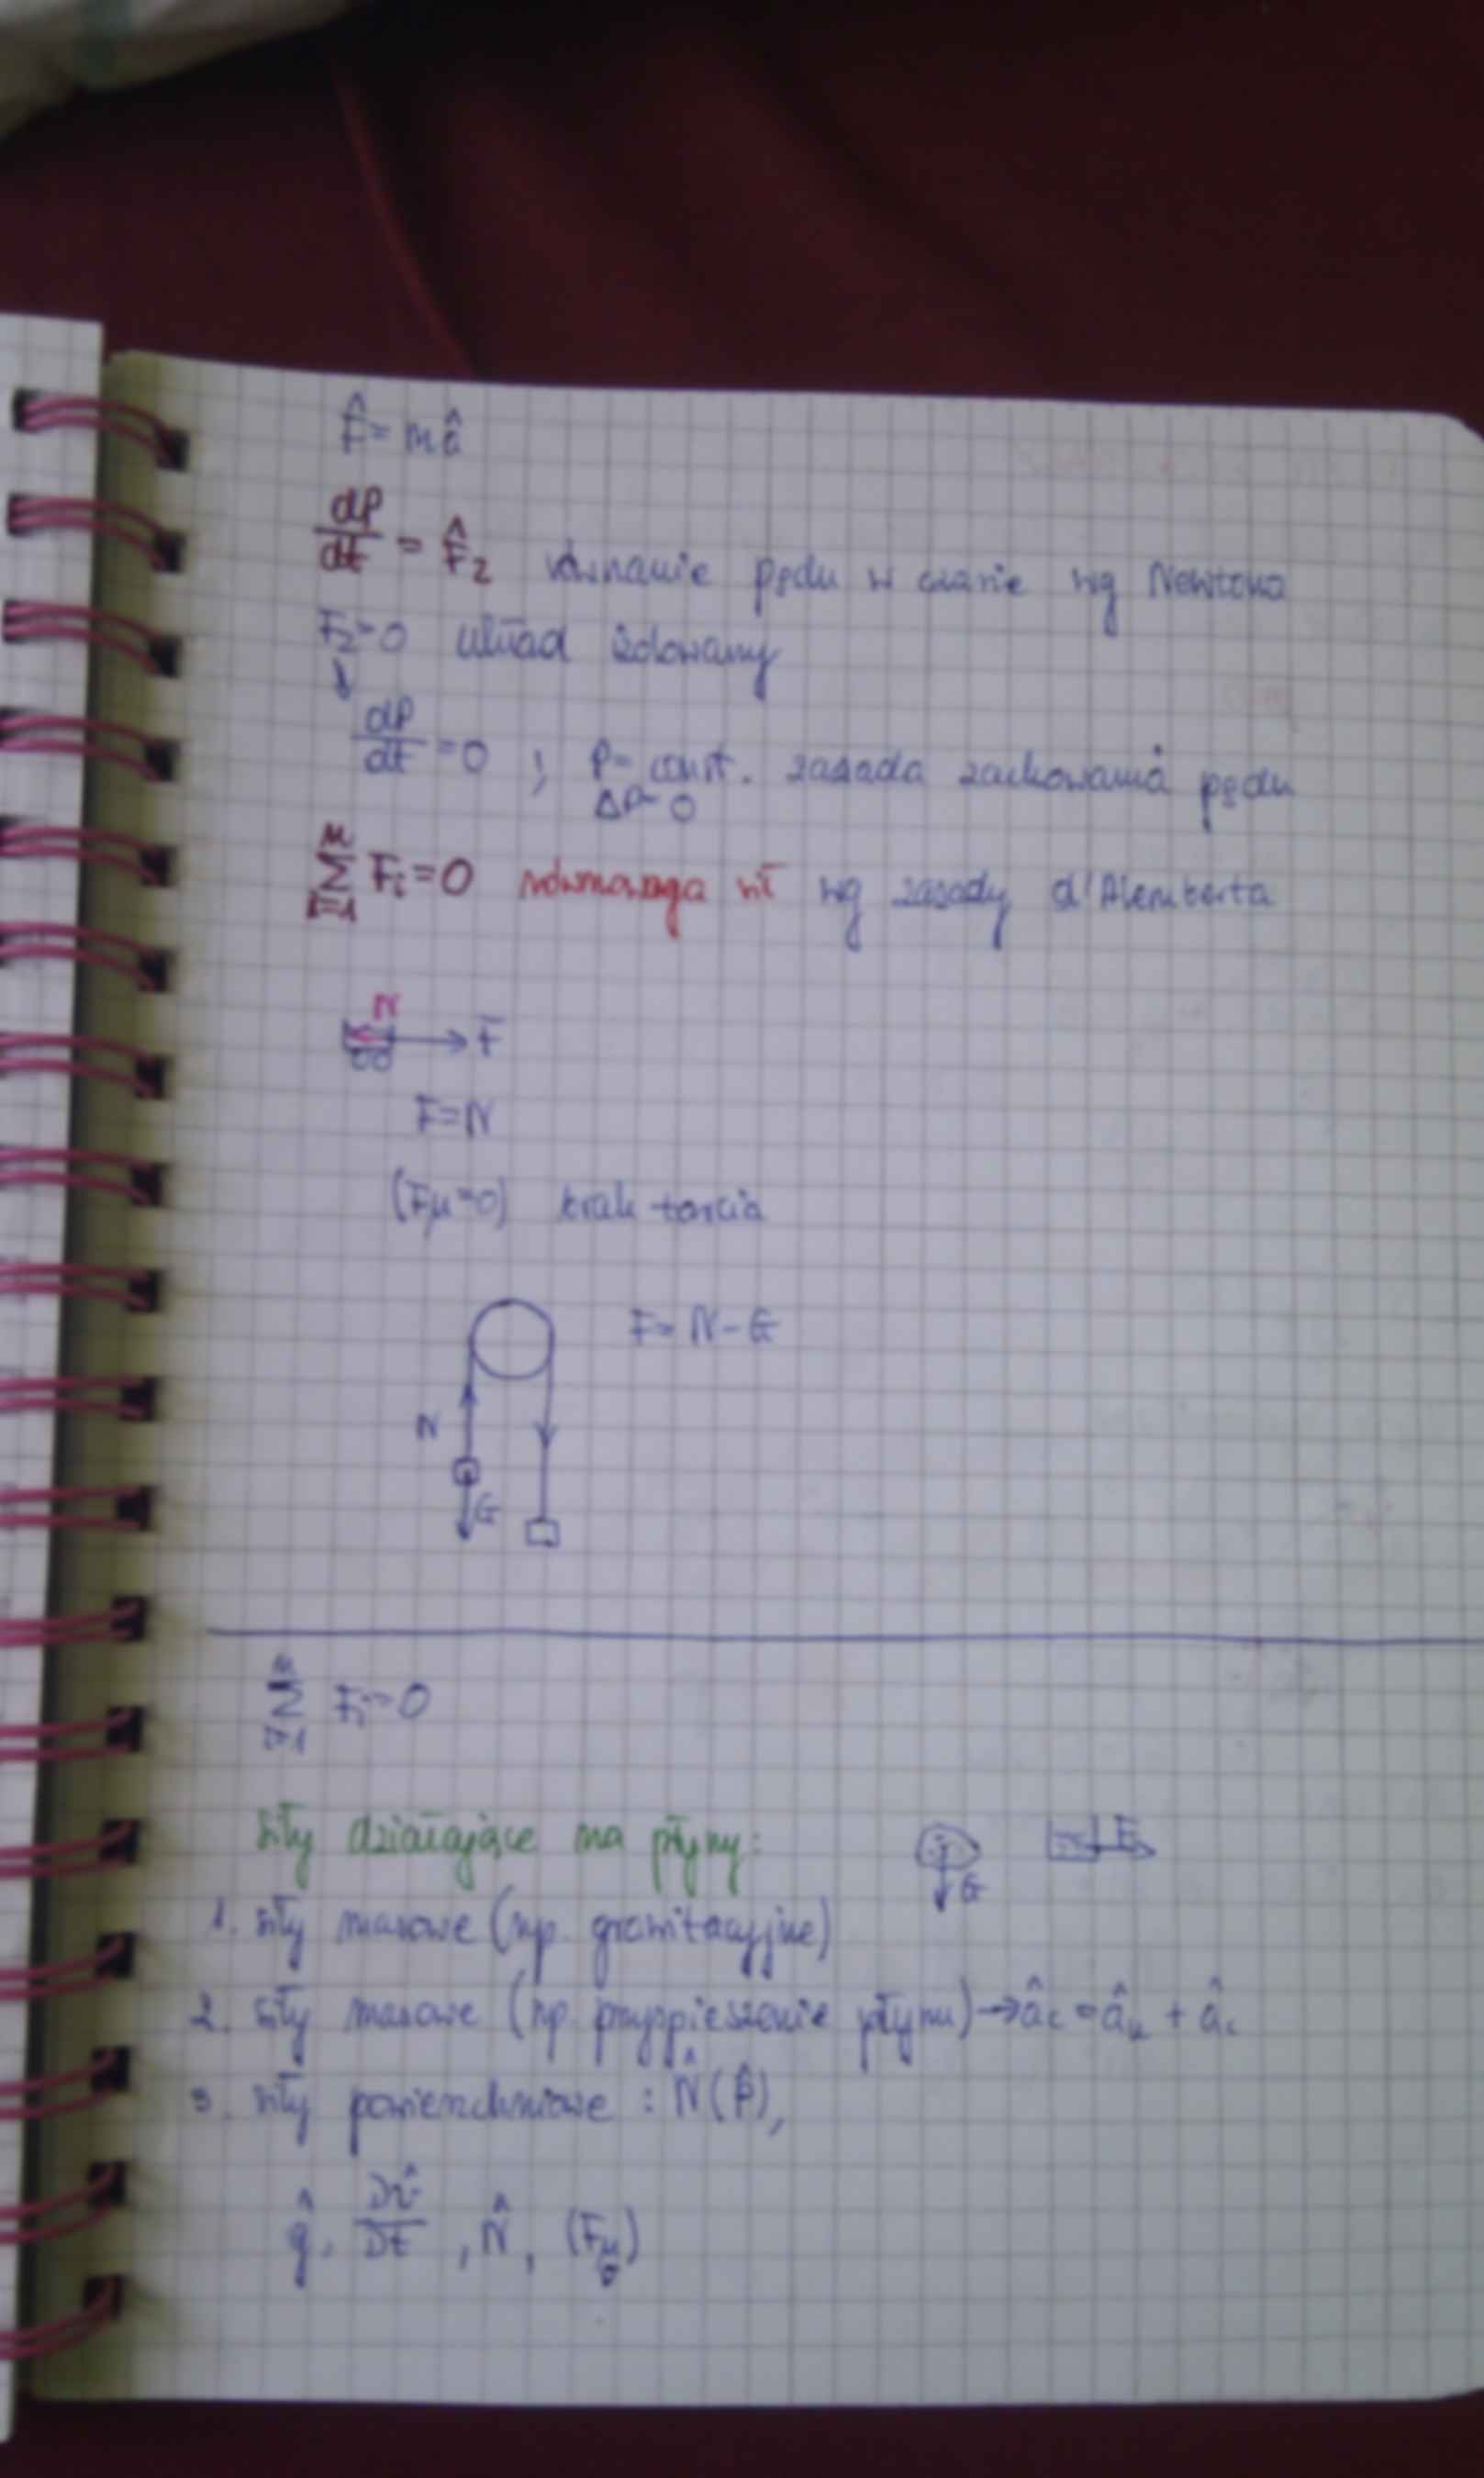 F̂ = mâ
dP/dt = F̂z równanie pędu w czasie wg Newtona
Fz = 0 układ izolowany
↓
dP/dt = 0 ; P = const. zasada zachowania pędu
ΔP = 0
n
Σ Fi = 0 równowaga sił wg zasady d'Alemberta
i=1
N
F
F = N
(Fμ = 0) brak tarcia
F = N - G
N
G
n
Σ Fi = 0
i=1
siły działające na płyny:
G
1. siły masowe (np. grawitacyjne)
2. siły masowe (np. przyspieszenie płynu) → âc = âu + âc
3. siły powierzchniowe : N̂ (P̂),
ĝ, Dv̂/Dt , N̂, (Fμ)